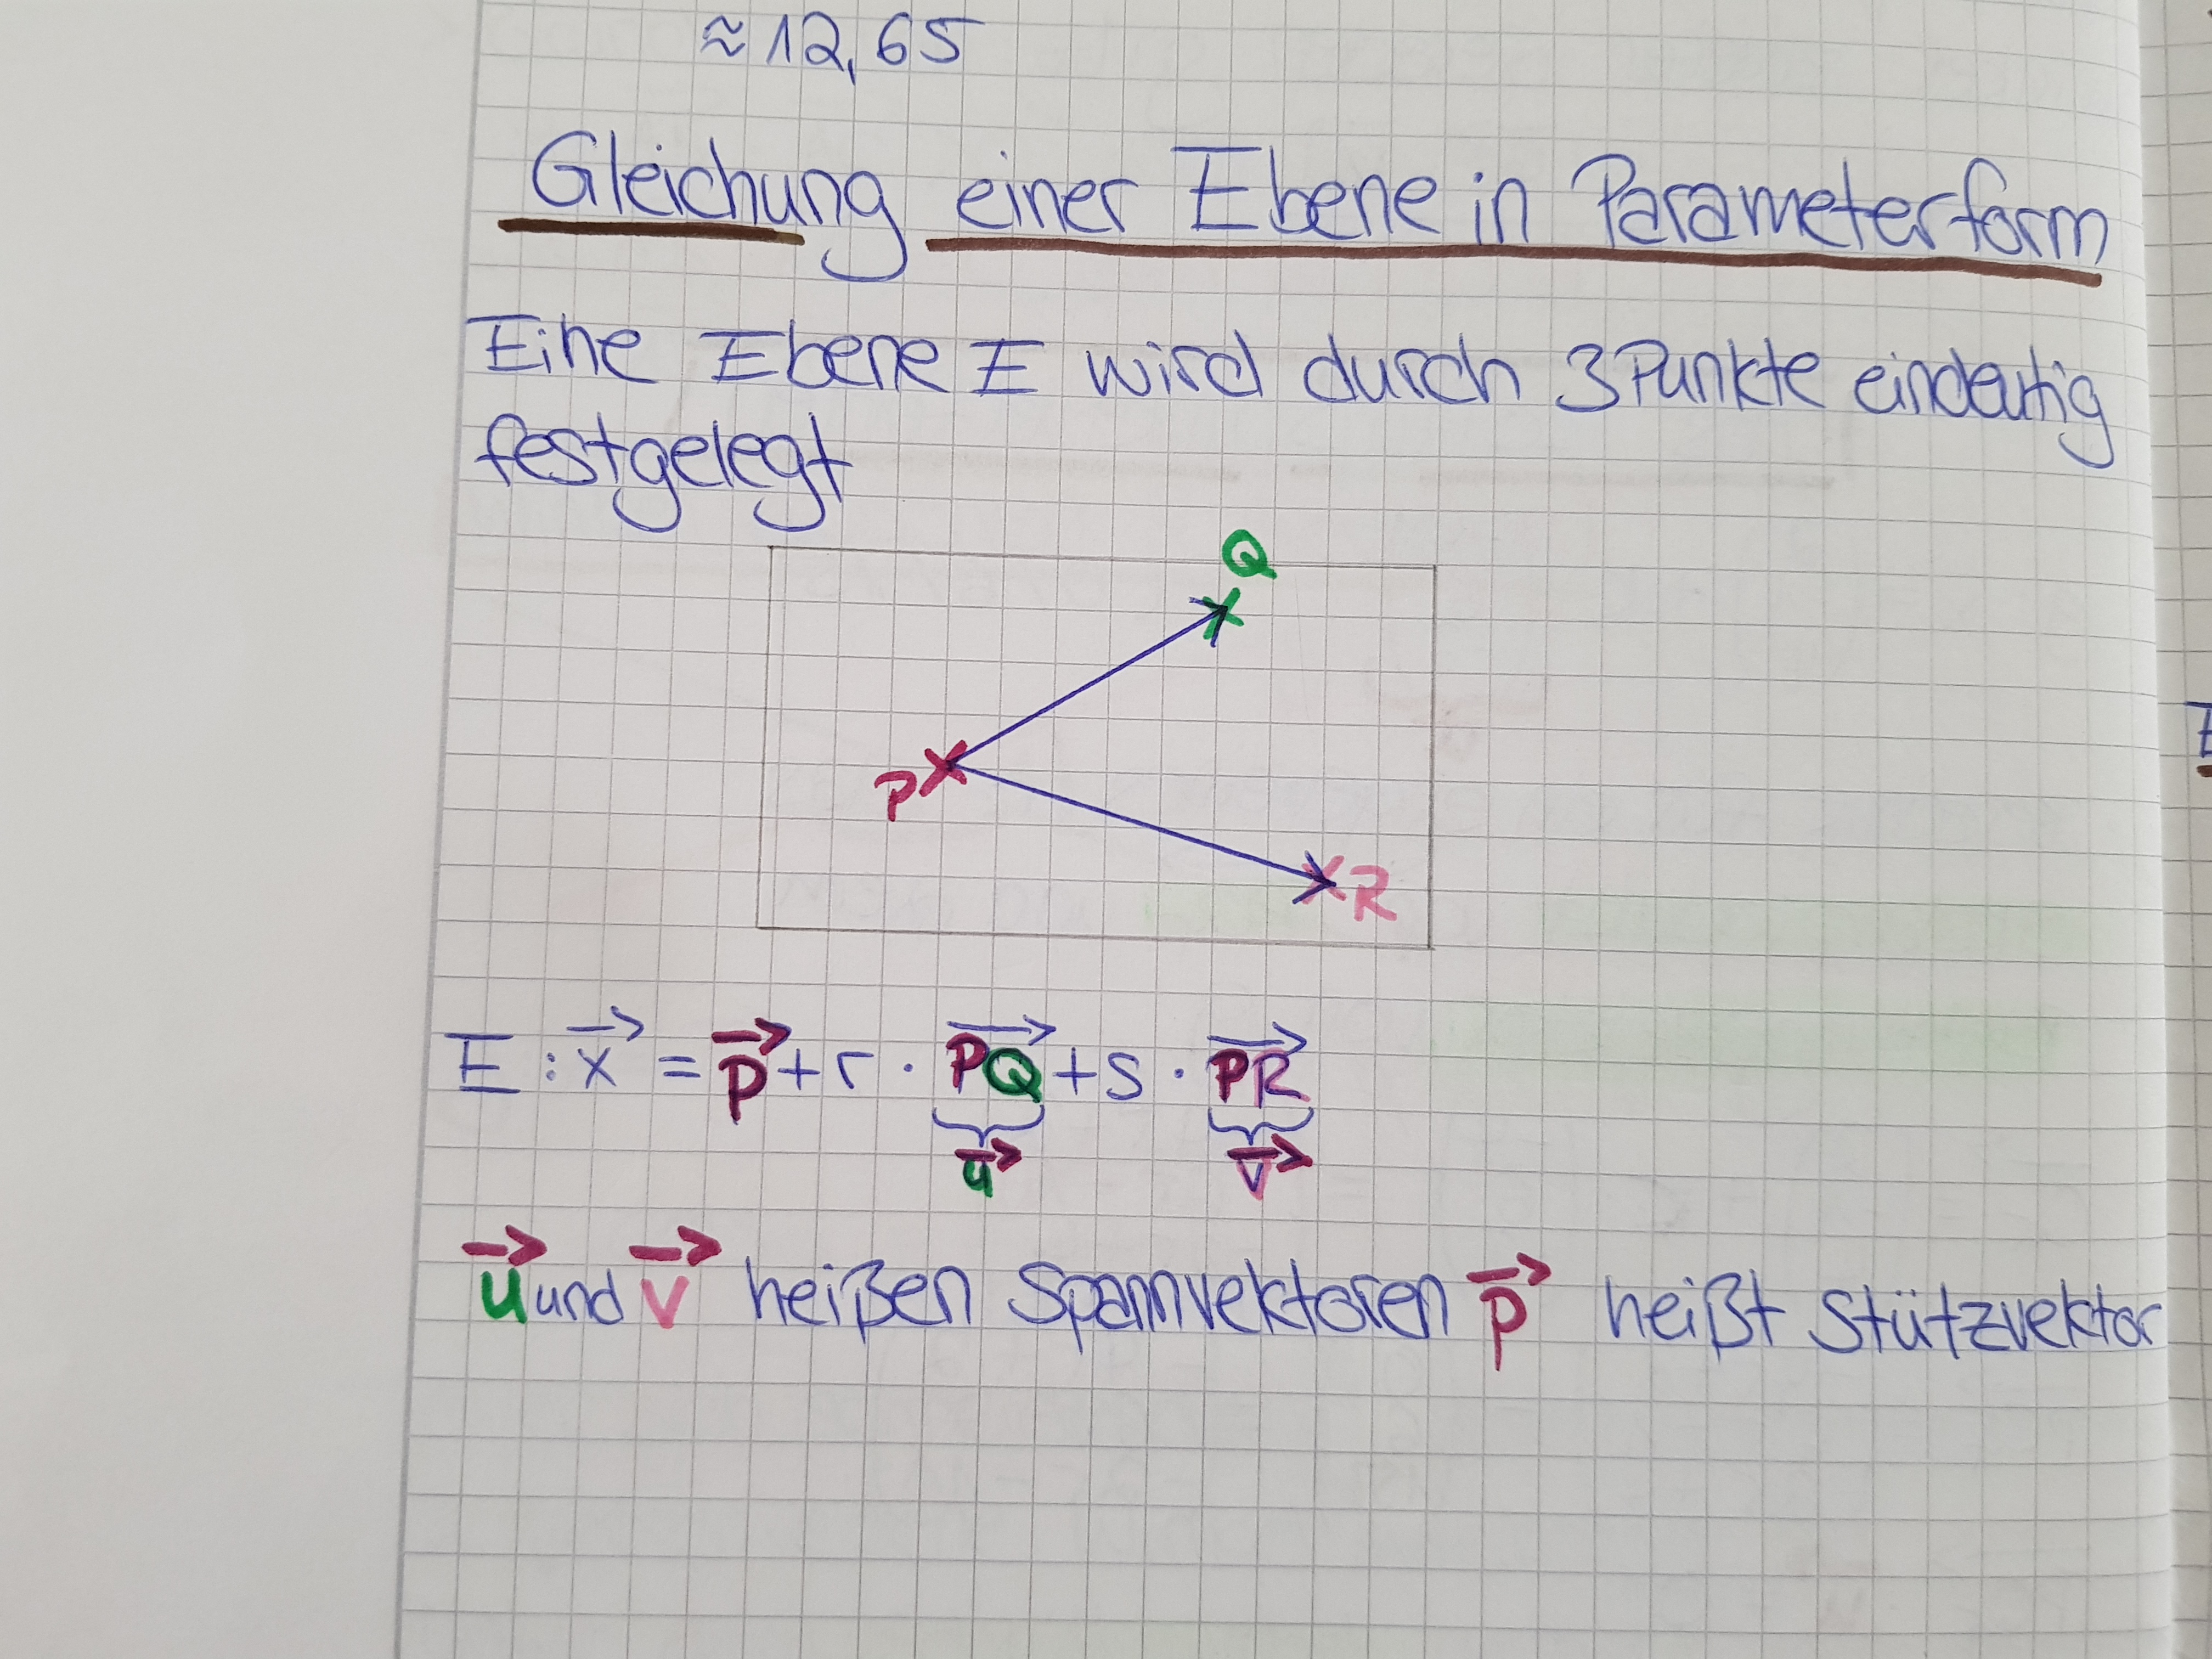 ≈ 12,65
Gleichung einer Ebene in Parameterform
Eine Ebene E wird durch 3 Punkte eindeutig
festgelegt
Q
P
R
E : x⃗ = p⃗ + r · PQ⃗ + s · PR⃗
u⃗ v⃗
u⃗ und v⃗ heißen Spannvektoren p⃗ heißt Stützvektor